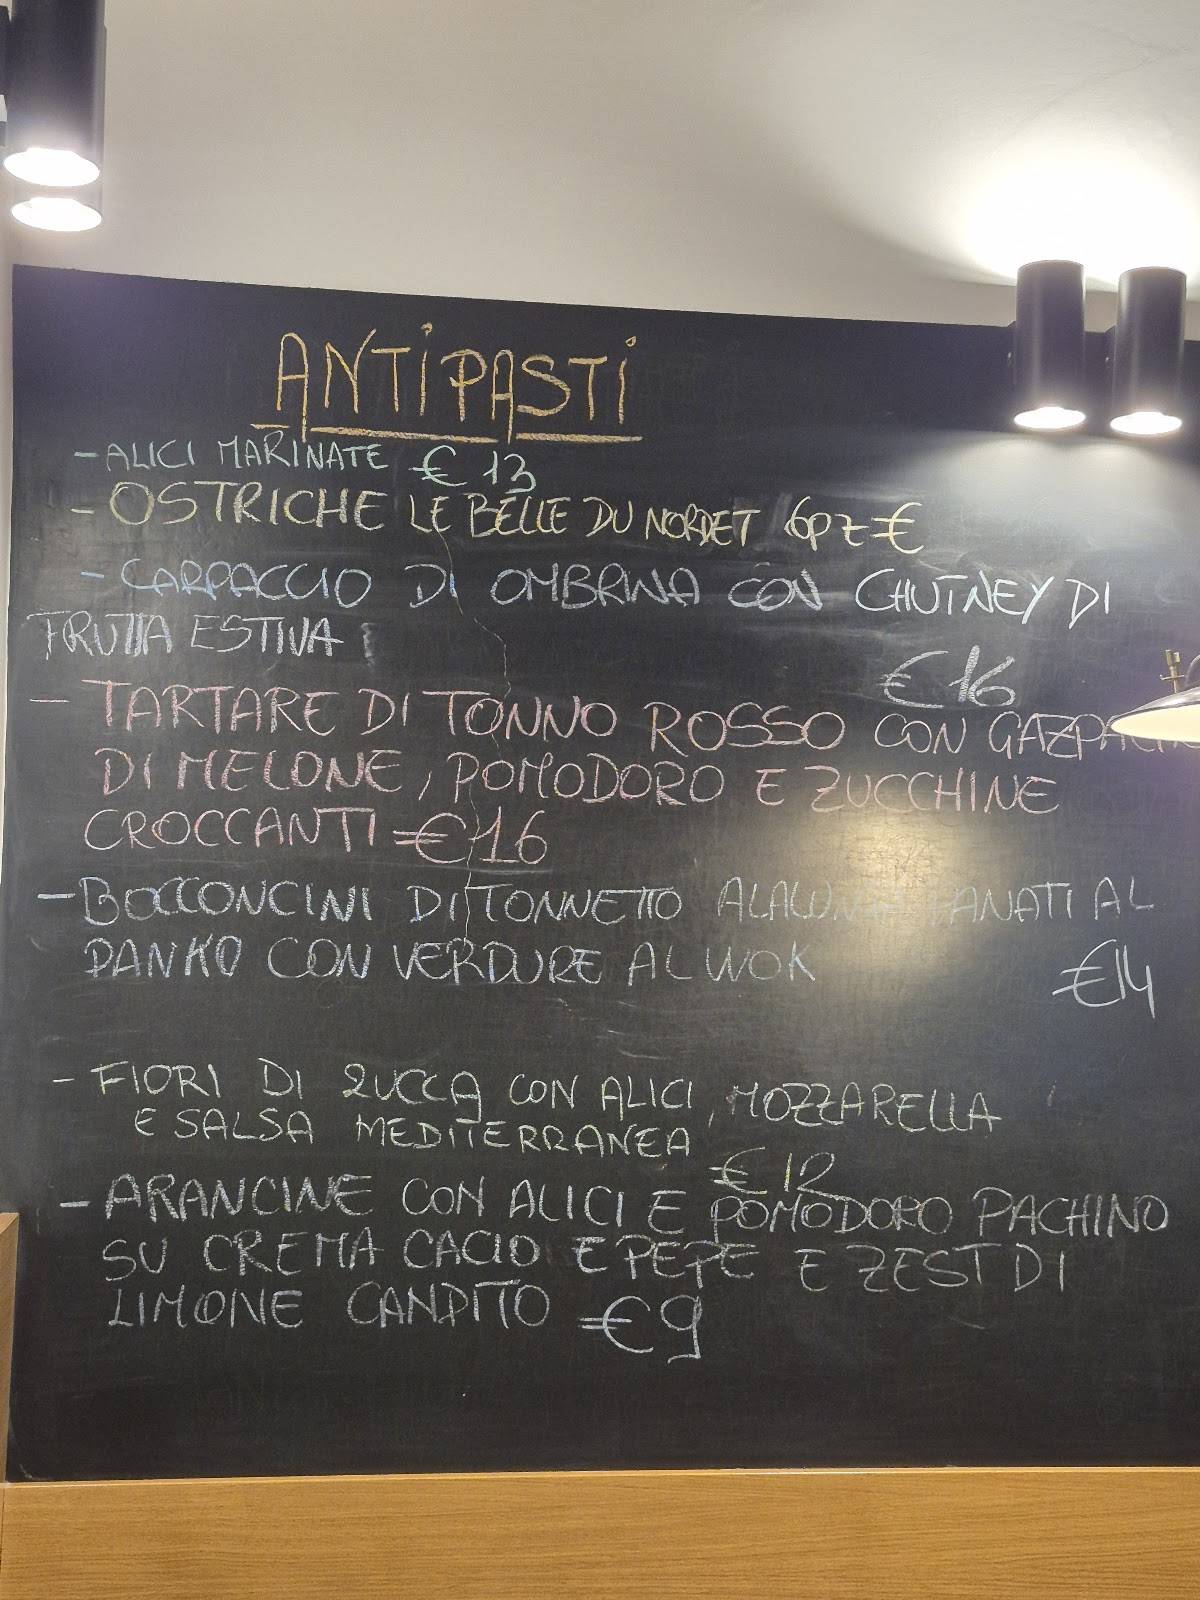 ANTIPASTI
- ALICI MARINATE € 13
- OSTRICHE LE BELLE DU NORDET 6pz €
- CARPACCIO DI OMBRINA CON CHUTNEY DI
FRUTTA ESTIVA
€ 16
- TARTARE DI TONNO ROSSO CON
DI MELONE, POMODORO E ZUCCHINE
CROCCANTI € 16
- BOCCONCINI DI TONNETTO ALALUNGA PANATI AL
PANKO CON VERDURE AL WOK
€14
- FIORI DI ZUCCA CON ALICI, MOZZARELLA
E SALSA MEDITERRANEA
€ 12
- ARANCINE CON ALICI E POMODORO PACHINO
SU CREMA CACIO E PEPE E ZEST DI
LIMONE CANDITO € 9